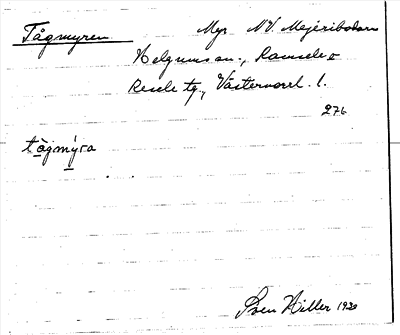 Tågmyren Myr NV. Mejeribodarn
Helgums sn., Ramsele o
Resele tg., Västernorrl. l.
276
tågmýra
Sven Hiller 1930